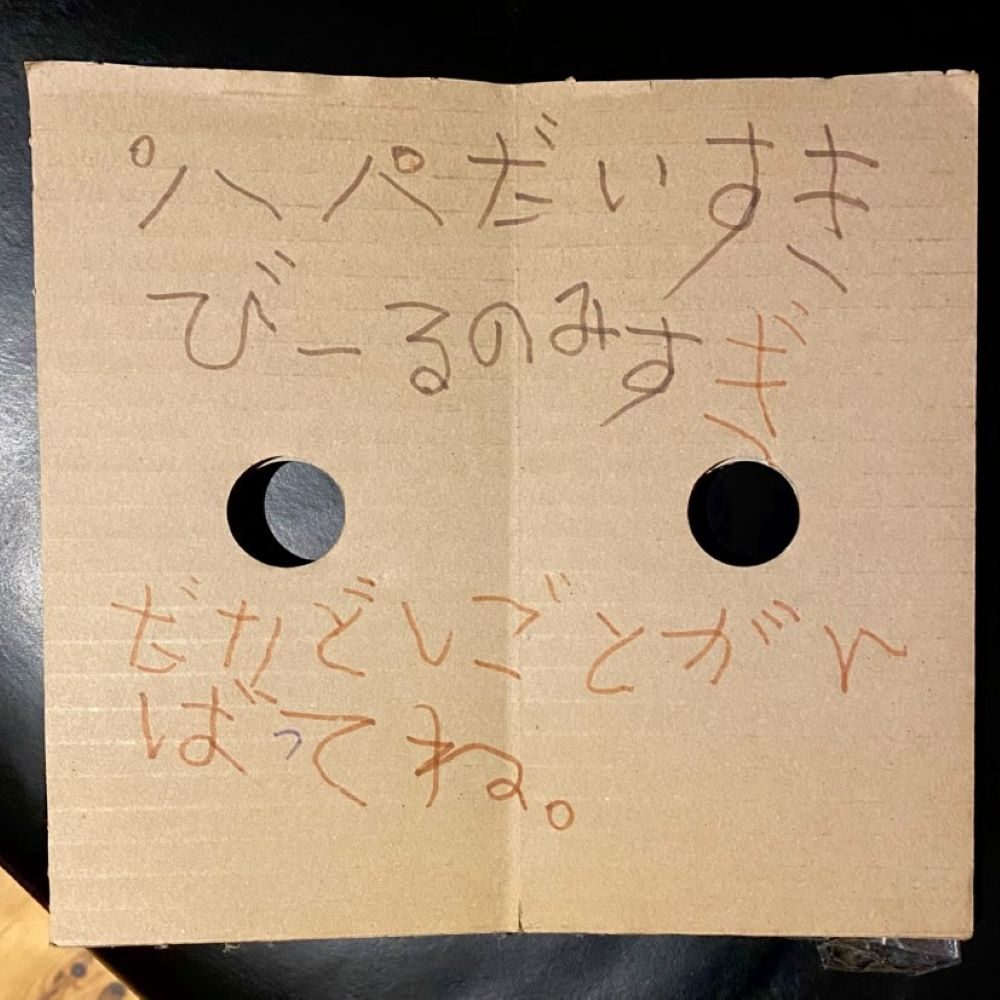 パパだいすき
びーるのみすぎ
だけどしごとがん
ばってね。